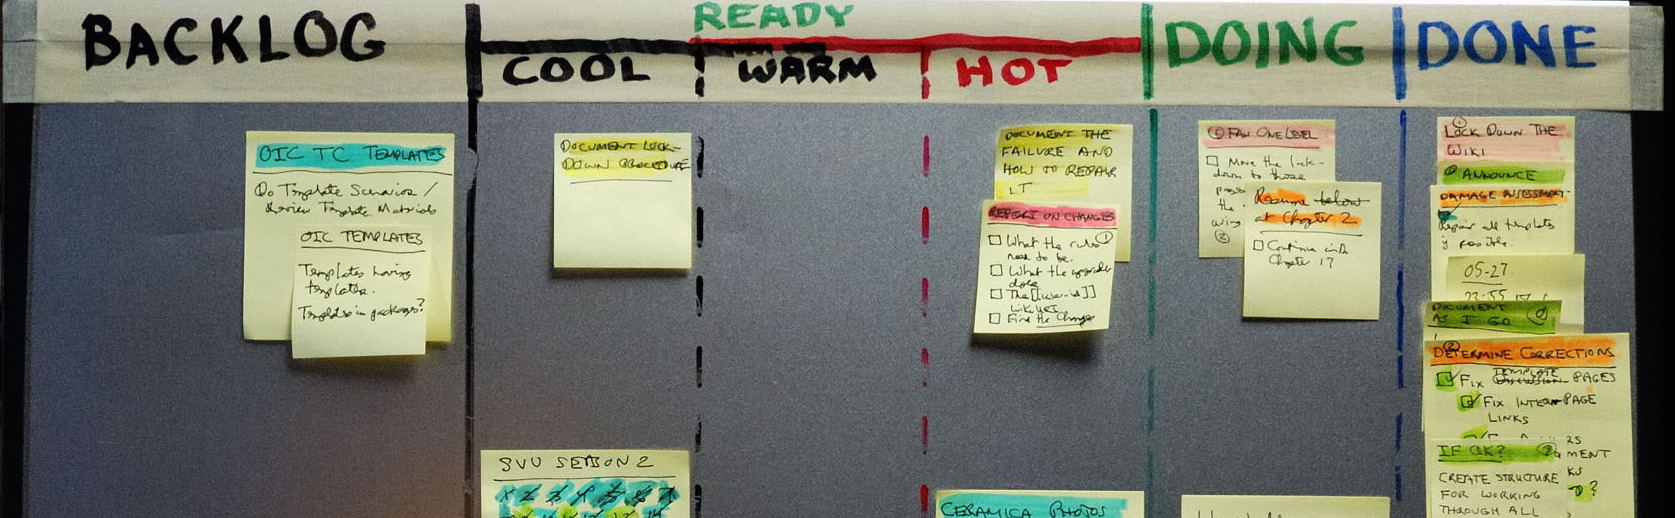 BACKLOG
READY
COOL
WARM
HOT
DOING
DONE
OIC TC TEMPLATES
Do Template Scenarios /
Review Template Materials
OIC TEMPLATES
Templates having
templates.
Templates in packages?
DOCUMENT LOCK-
DOWN PROCEDURE
SVU SEASON 2
DOCUMENT THE
FAILURE AND
HOW TO REPAIR
IT
REPORT ON CHANGES
What the rules
need to be.
What the upgrader
does
The
Find the Changes
CERAMICA PHOTOS
FAN ONE LEVEL
Move the lock-
down to those
pages
the
wiring
Resume below
at Chapter 2
Continue with
Chapter 17
LOCK DOWN THE
WIKI
ANNOUNCE
DAMAGE ASSESSMENT
Repair all templates
if possible.
05-27
23:55
DOCUMENT
AS I GO
DETERMINE CORRECTIONS
FIX TEMPLATE PAGES
FIX INTER-PAGE
LINKS
IF OK?
CREATE STRUCTURE
FOR WORKING
THROUGH ALL